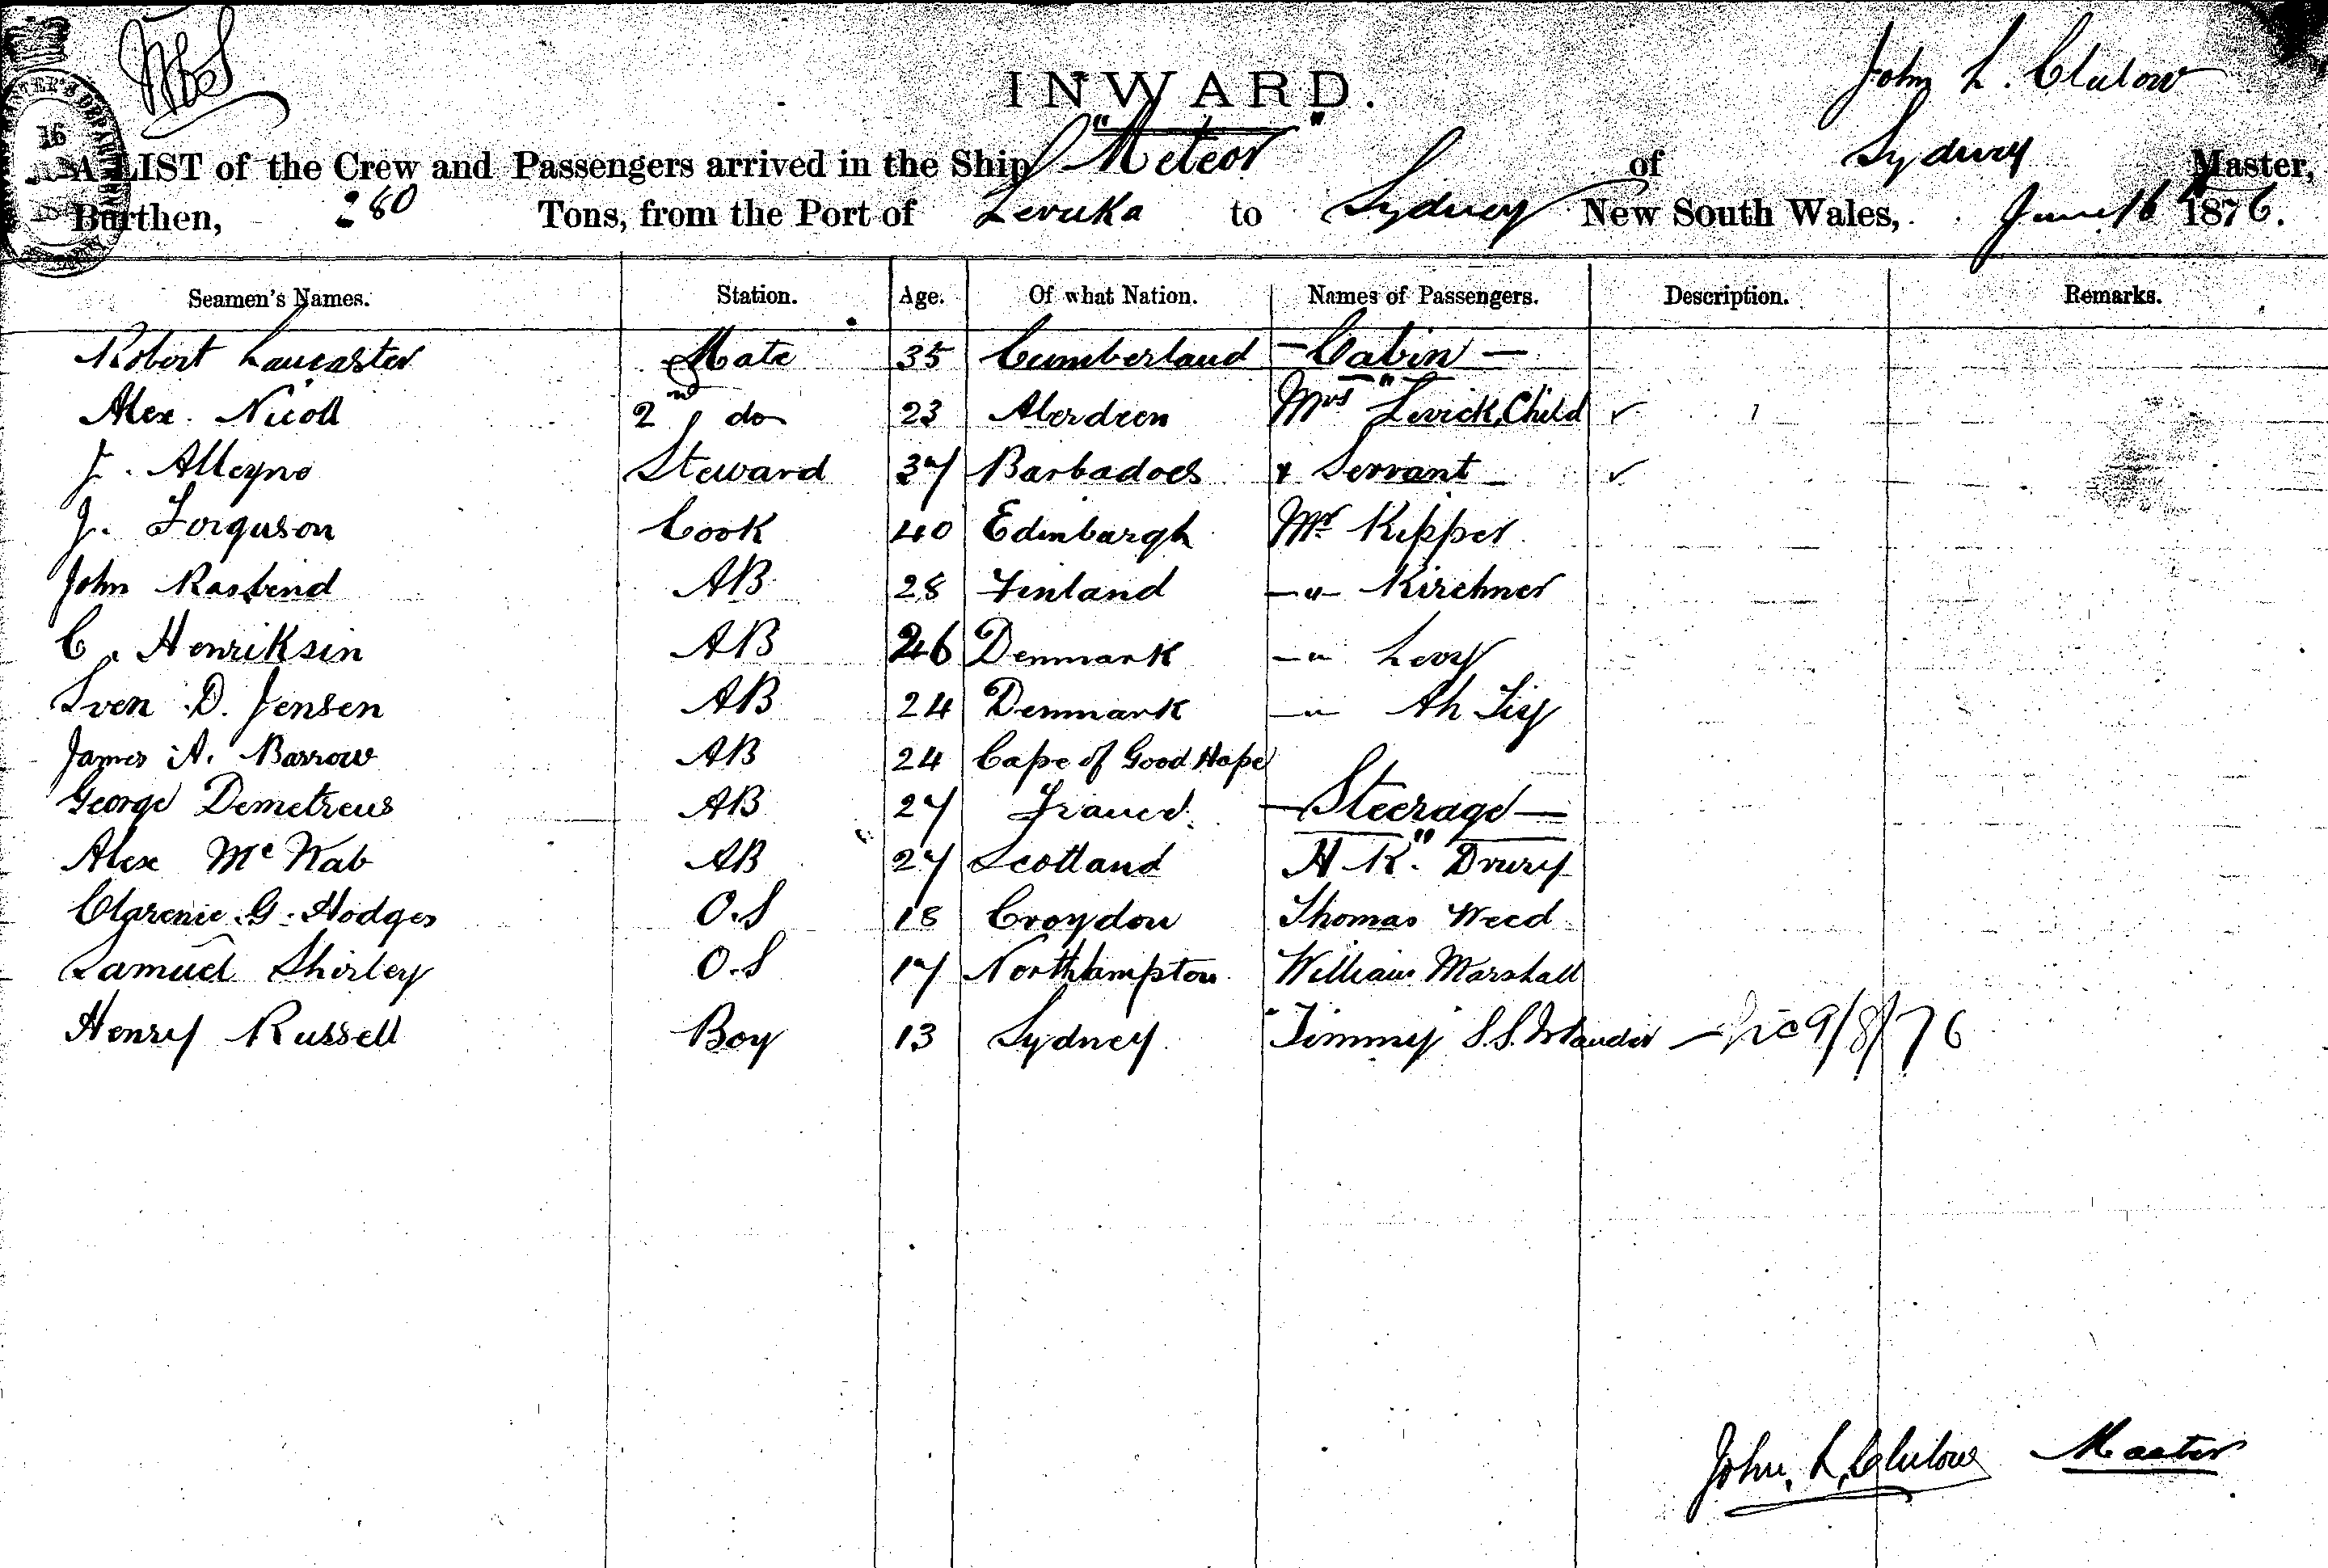 INWARD.
John L. Clulow
A LIST of the Crew and Passengers arrived in the Ship "Meteor" of Sydney Master,
Burthen, 280 Tons, from the Port of Levuka to Sydney New South Wales, June 16 1876.
Seamen's Names. Station. Age. Of what Nation. Names of Passengers. Description. Remarks.
Robert Lancaster Mate 35 Cumberland — Cabin —
Alex. Nicoll 2nd do 23 Aberdeen Mrs Levick, Child ✓
J. Alleyno Steward 37 Barbadoes & Servant ✓
J. Forguson Cook 40 Edinbargh Mr Kipper
John Rasbend AB 28 Finland —"— Kirchner
C. Henriksin AB 26 Denmark —"— Levy
Sven D. Jensen AB 24 Denmark —"— Ah
James A. Barrow AB 24 Cape of Good Hope
George Demetreus AB 27 France — Steerage —
Alex McNab AB 27 Scotland H K. Drury
Clarence G. Hodges O.S 18 Croydon Thomas Weed
Samuel Shirley O.S 17 Northampton William Marshall
Henry Russell Boy 13 Sydney "Jimmy" S.S. Islander 9/8/76
John. L. Clulow Master